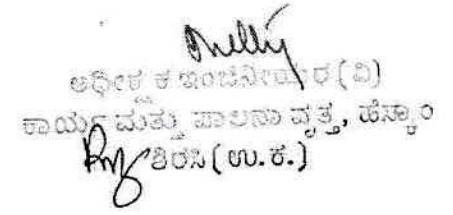 ಅಧೀಕ್ಷಕ ಇಂಜಿನೀಯರ (ವಿ)
ಕಾರ್ಯ ಮತ್ತು ಪಾಲನಾ ವೃತ್ತ, ಹೆಸ್ಕಾಂ
ಶಿರಸಿ (ಉ.ಕ.)